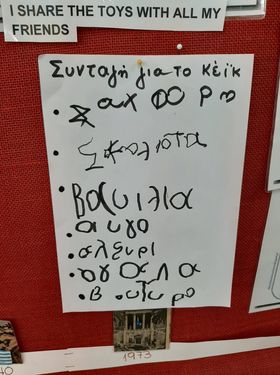 I SHARE THE TOYS WITH ALL MY
FRIENDS
Συνταγή για το κέικ
• βανιλια
• αυγο
• αλευρι
• βουτυρο
1973